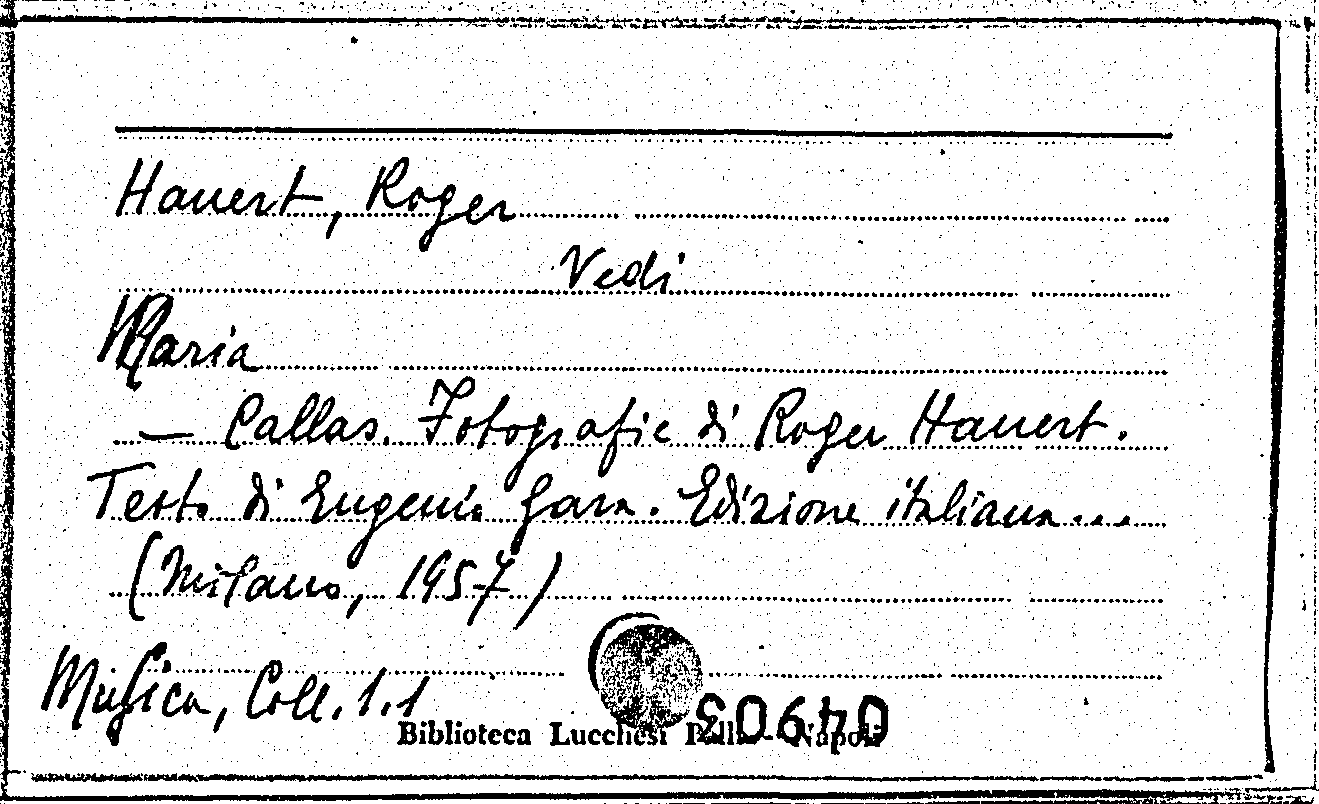 Hauert, Roger
Vedi
Maria
— Callas. Fotografie di Roger Hauert.
Testo di Eugenio Gara. Edizione italiana...
(Milano, 1957)
Musica, Coll. 1.1
Biblioteca Lucchesi Palli - Napoli
04903